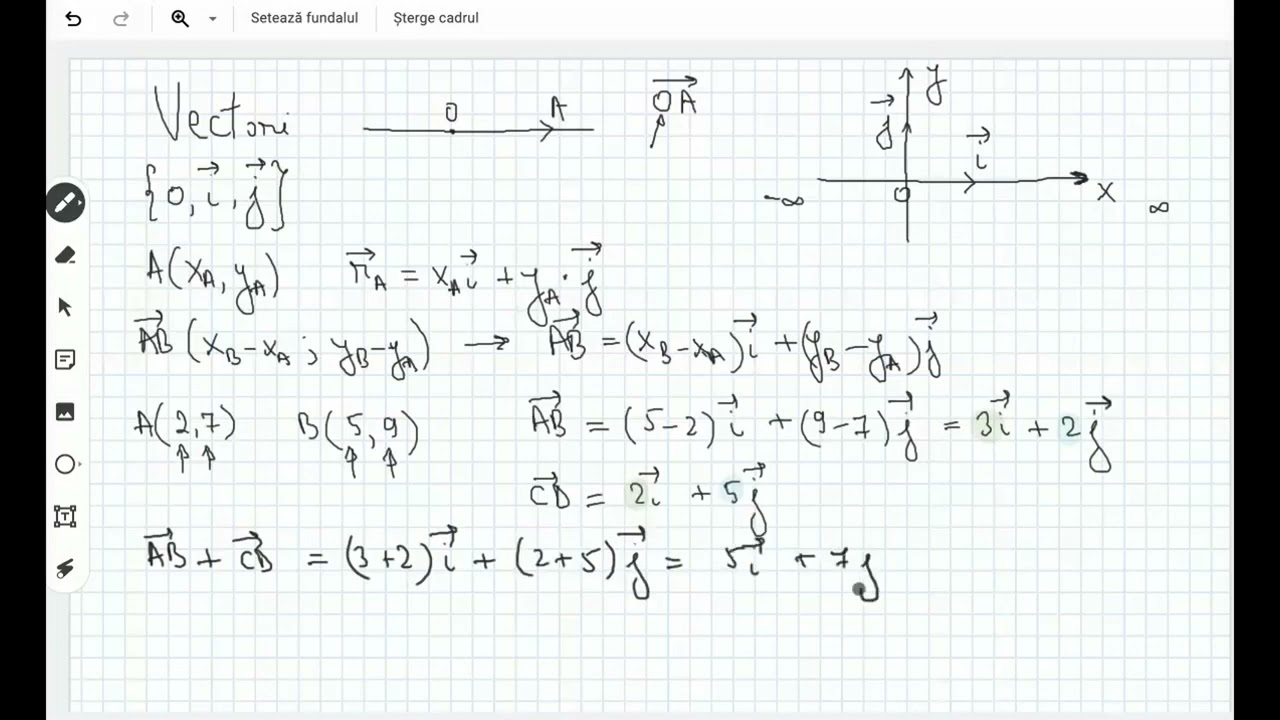 Setează fundalul Șterge cadrul
Vectorii O A →OA y →j →i O x -∞ ∞
{0, →i, →j}
A(x_A, y_A) →r_A = x_A →i + y_A · →j
→AB (x_B - x_A ; y_B - y_A) → →AB = (x_B - x_A) →i + (y_B - y_A) →j
A(2,7) B(5,9) →AB = (5-2) →i + (9-7) →j = 3→i + 2→j
→CD = 2→i + 5→j
→AB + →CD = (3+2) →i + (2+5) →j = 5→i + 7j